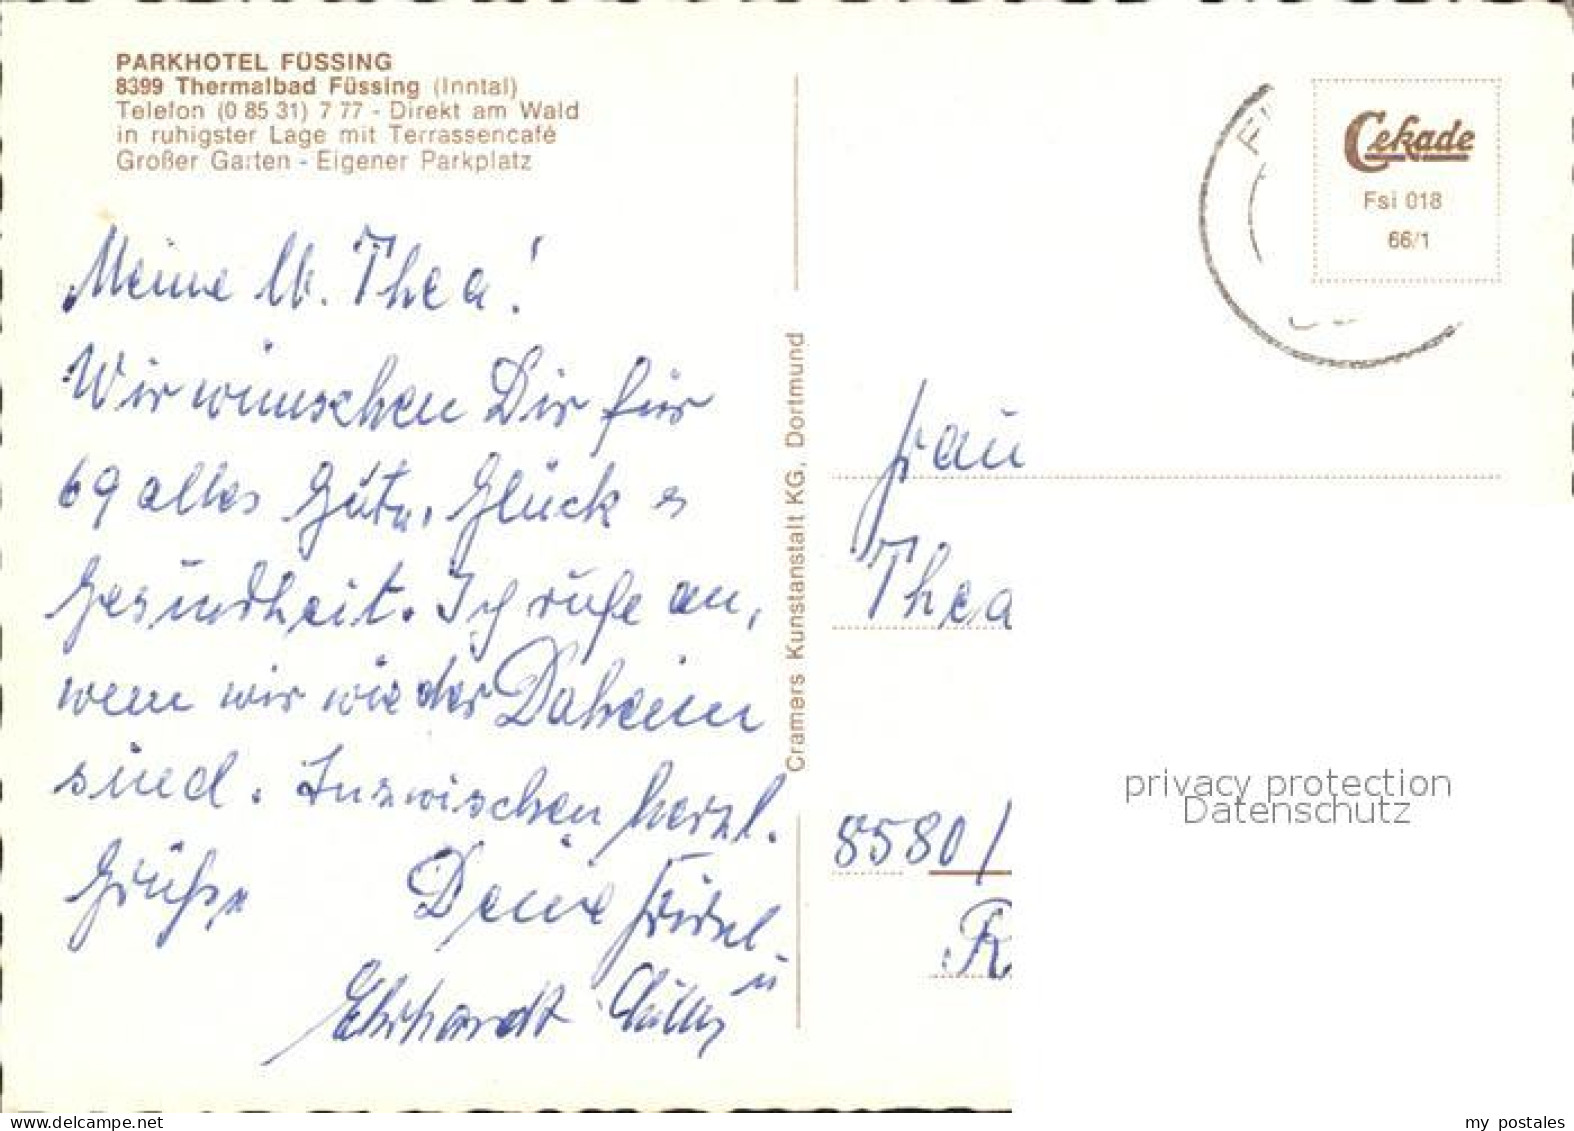 PARKHOTEL FÜSSING
8399 Thermalbad Füssing (Inntal)
Telefon (0 85 31) 7 77 - Direkt am Wald
in ruhigster Lage mit Terrassencafé
Großer Garten - Eigener Parkplatz
Meine lb. Thea!
Wir wünschen Dir für
69 alles Gute, Glück
Gesundheit. Ich rufe an,
wenn wir wieder Daheim
sind. Inzwischen herzl.
Grüße Deine
Ehrhardt
Cramers Kunstanstalt KG, Dortmund
Cekade
Fsi 018
66/1
Frau
Thea
8580/
R
privacy protection
Datenschutz
delcampe.net
my postales